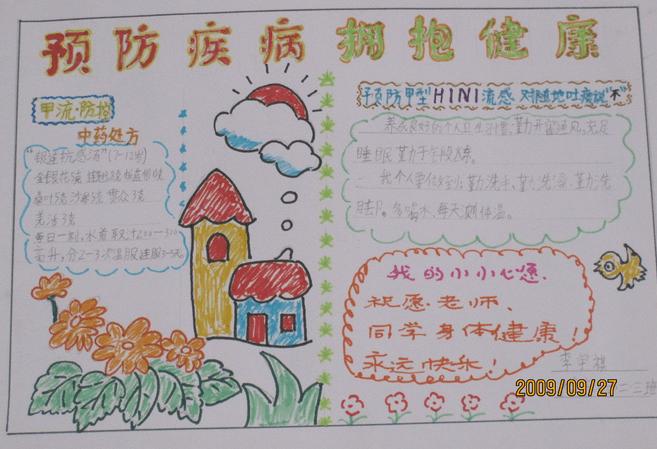 预防疾病 拥抱健康
甲流·防控
中药处方
"银莲抗感汤"(7-12岁)
羌活3克
每日一剂,水煎取汁200—300
毫升,分2—3次温服连服3-5天
预防甲型H1N1流感 对随地吐痰说"不"
一、养成良好的个人卫生习惯,勤开窗通风,充足
睡眠勤于锻炼。
二、我个人要做好:勤洗手、勤洗澡、勤洗
多喝水、每天测体温。
我的小小心愿.
祝愿老师、
同学身体健康!
永远快乐!
李宇祺
二三班
2009/09/27